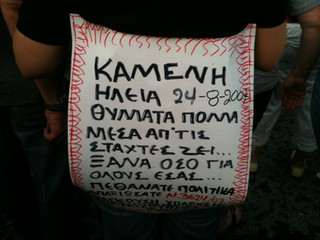 ΚΑΜΕΝΗ
ΗΛΕΙΑ 24-8-2007
ΘΥΜΑΤΑ ΠΟΛΛ
ΜΕΣΑ ΑΠ'ΤΙΣ
ΣΤΑΧΤΕΣ ΖΕΙ...
ΞΑΝΑ ΟΣΟ ΓΙΑ
ΟΛΟΥΣ ΕΣΑΣ...
ΠΕΘΑΝΑΤΕ ΠΟΛΙΤΙΚΑ